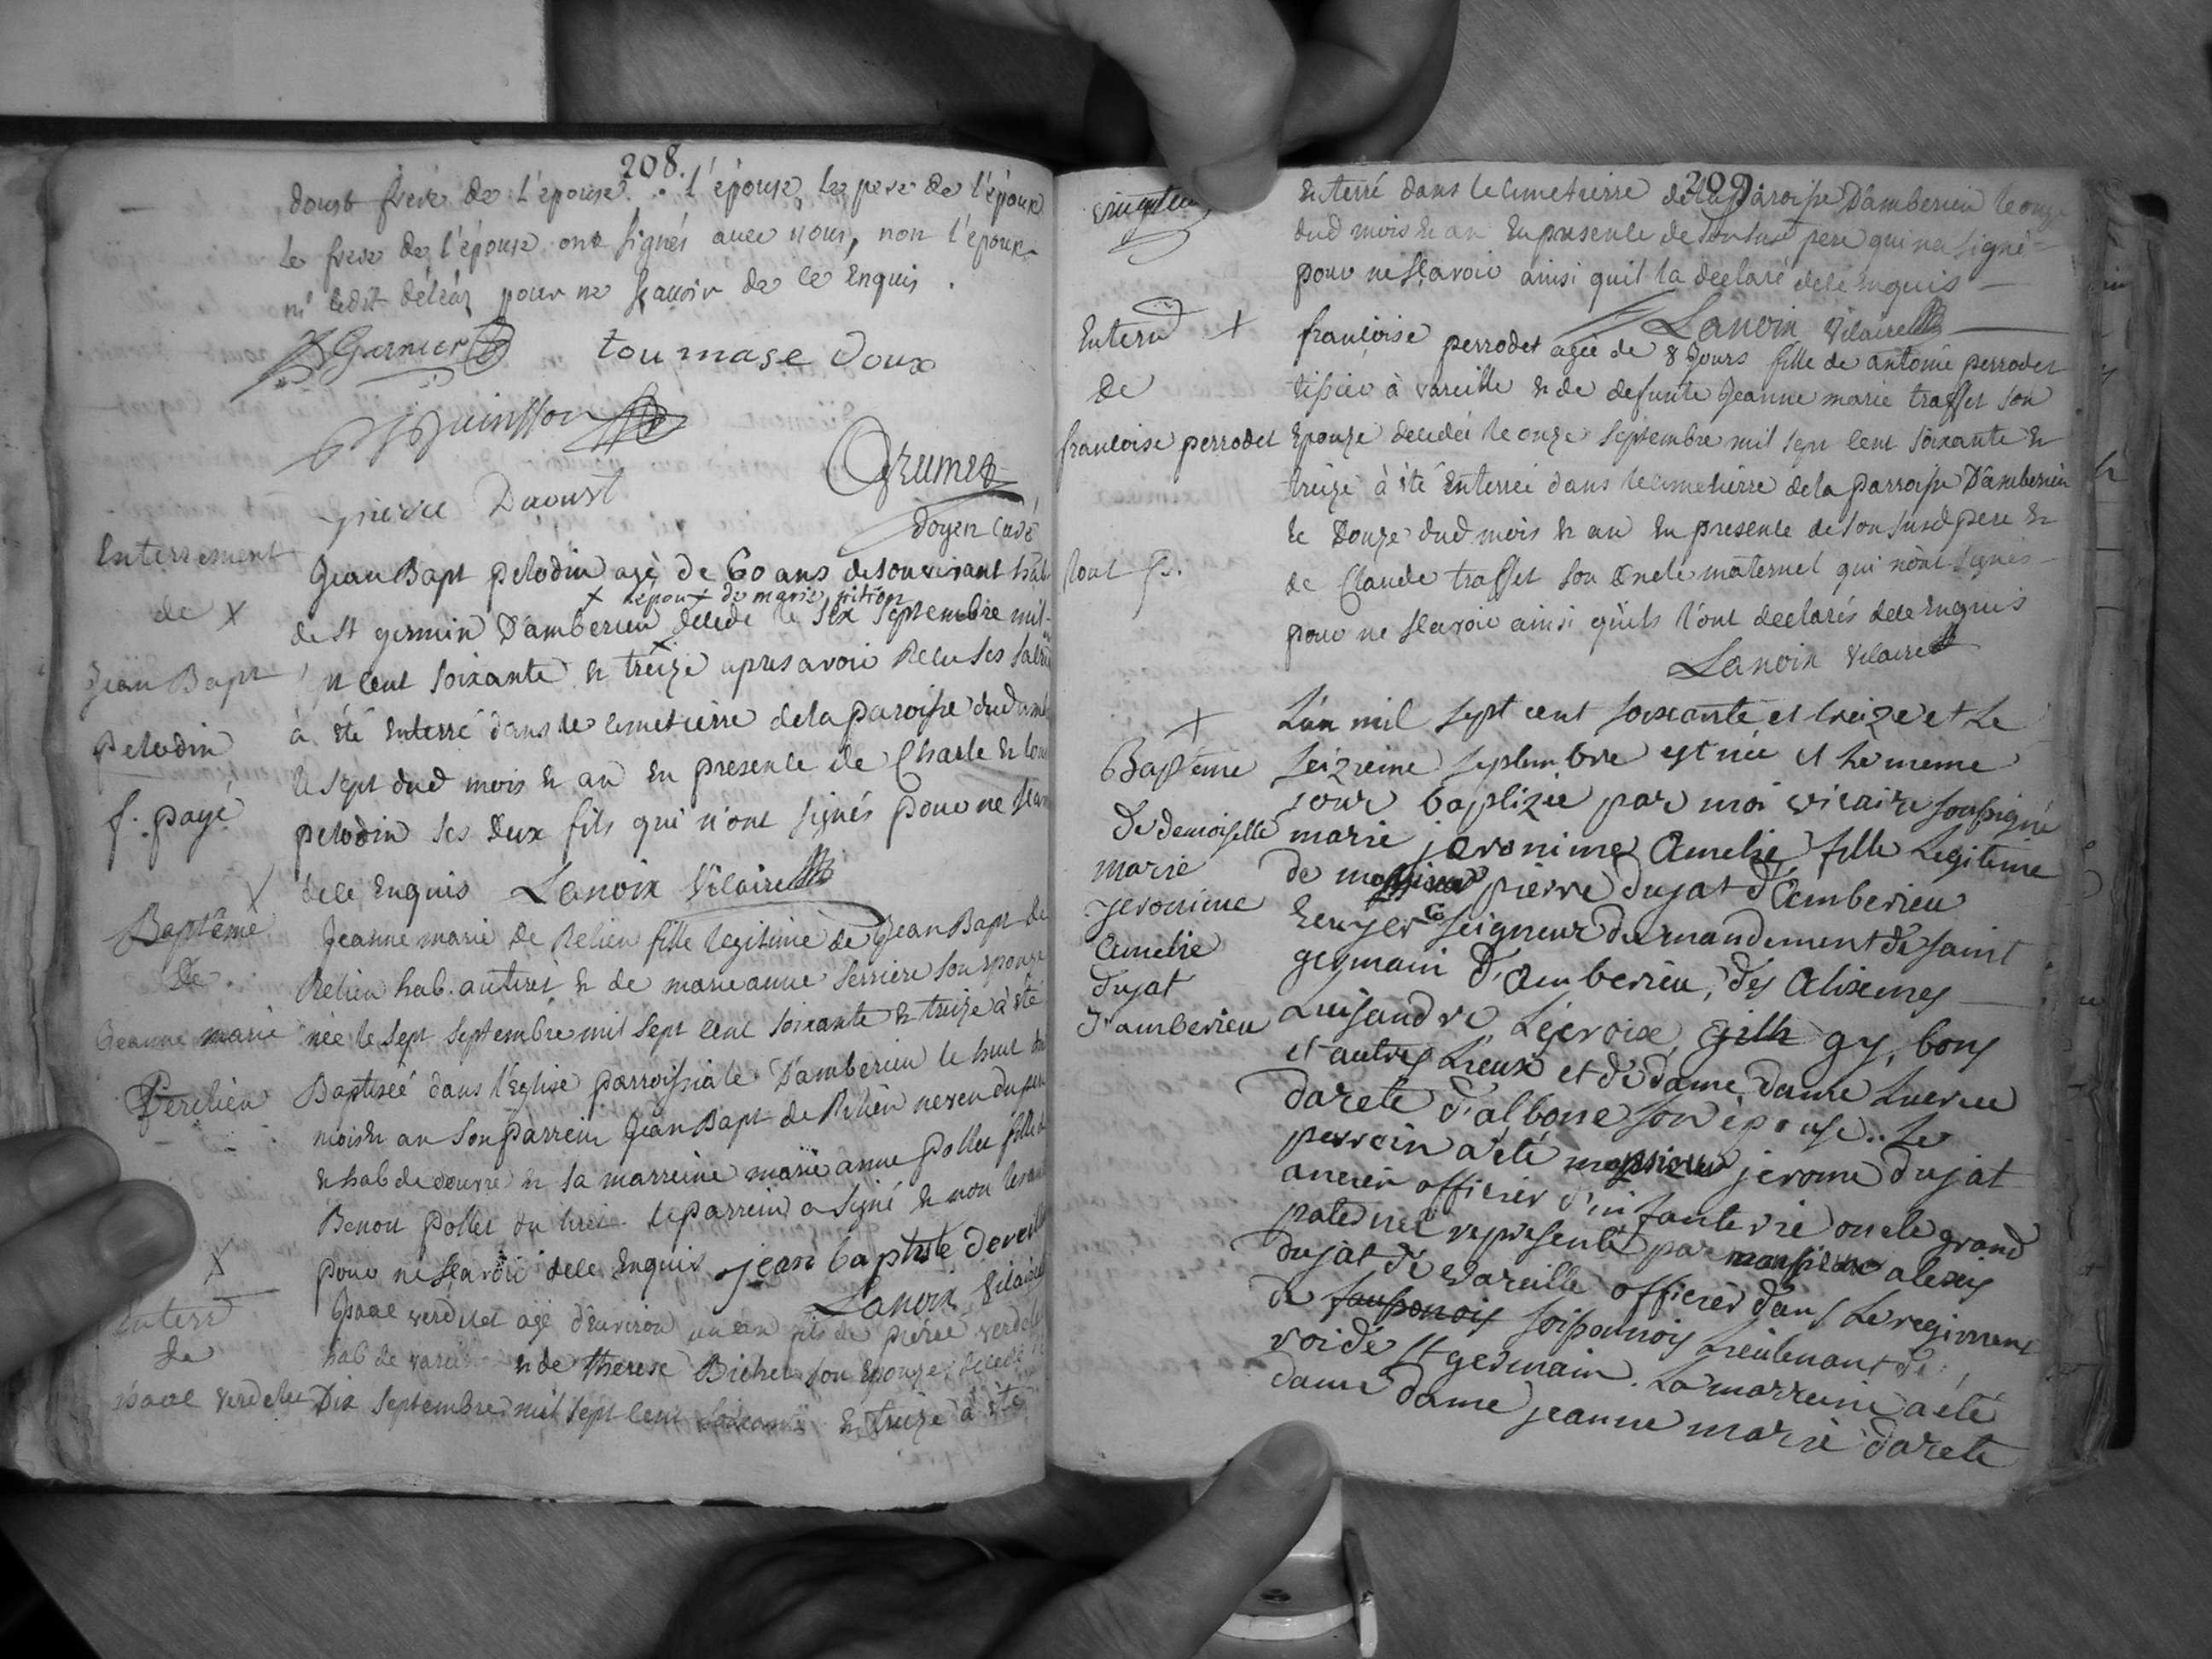 208.
doust frere de l'epouse. l'épouse, le pere de l'époux
le frere de l'épouse ont signés avec nous, non l'époux
ni ledit déléaz pour ne sçauoir de ce Enquis.
Garnier toumase doux
Guinsson
Grumet
pierre Daoust
doyen curé
Enterrement
de X
Jean Bapt
Pelodin
f. payé
Jean Bapt pelodin agé de 60 ans de son vivant hab
X Lepoux de marie pition
de st germin D'amberieu decedé le six septembre mil
sept cent soixante & treize apres avoir Recu ses
à été Enterré dans le cimetierre de la paroisse dud
le sept dud mois & an En presence de Charle &
pelodin ses deux fils qui n'ont signés pour ne
de ce Enquis Lanoix Vicaire
X
Baptême
de
Jeanne marie
Derelien
Jeanne marie de Relien fille legitime de Jean Bapt de
Relien hab. au tiret & de marieanne serriere son epouze
née le sept septembre mil sept cent soixante & treize à été
Baptiséé dans l'Eglise parroissiale D'amberieu le huit
mois & an son parrein Jean Bapt de Relien neveu du pere
& hab de douvre & sa marreine marie anne Pollet fille
Benoit pollet du tiret le parrein a signé & non
pour ne sçavoir de ce Enquis jean baptiste
Lanoix Vicaire
X
Enterr
de
isaac verdelet
Isaac verdelet agé d'environ un an fils de pierre
hab de vareille & de therese Bichet son Epouze decedé
Dix septembre mil sept cent soixante & treize à été
209
Enterré dans le cimetierre de la paroisse D'amberieu le onze
dud mois & an En presence de son susd pere qui na signé
pour ne sçavoir ainsi quil la declaré de ce Enquis
Lanoix Vicaire
Enterr X
de
francoise perrodet
francoise perrodet agée de 8 jours fille de antoine perrodet
tissier à vareille & de defunte Jeanne marie trasset son
Epouze decedéé le onze septembre mil sept cent soixante &
treize à été Enterréé dans le cimetierre de la parroisse D'amberieu
le Douze dud mois & an En presence de son susd pere &
de Claude trasset son Oncle maternel qui n'ont signés
pour ne sçavoir ainsi quils l'ont declarés de ce Enquis
Lanoix Vicaire
X
Baptême
de demoiselle
marie
jeronime
Amelie
dujat
d'amberieu
L'an mil sept cent soixante et treize et Le
seizieme septembre est née et le meme
jour baptizée par moi vicaire soussigné
marie jeronime Amelie fille Legitime
de messire pierre dujat d'Amberieu
Ecuyer seigneur du mandement de saint
germain d'Amberieu, des Alixmes
Luisandre, Lacroix, gilh gy, bons
et autres Lieux et de dame, dame Lucrece
darete d'albonne son épouse.. Le
parrein a été messire jerome dujat
ancien officier d'infanterie oncle grand
paternel representé par monsieur alexis
dujat de vareille officier dans Le regiment
de soissonnois soissonnois Lieutenant de
roi de st germain. La marreine a été
dame dame jeanne marie darete